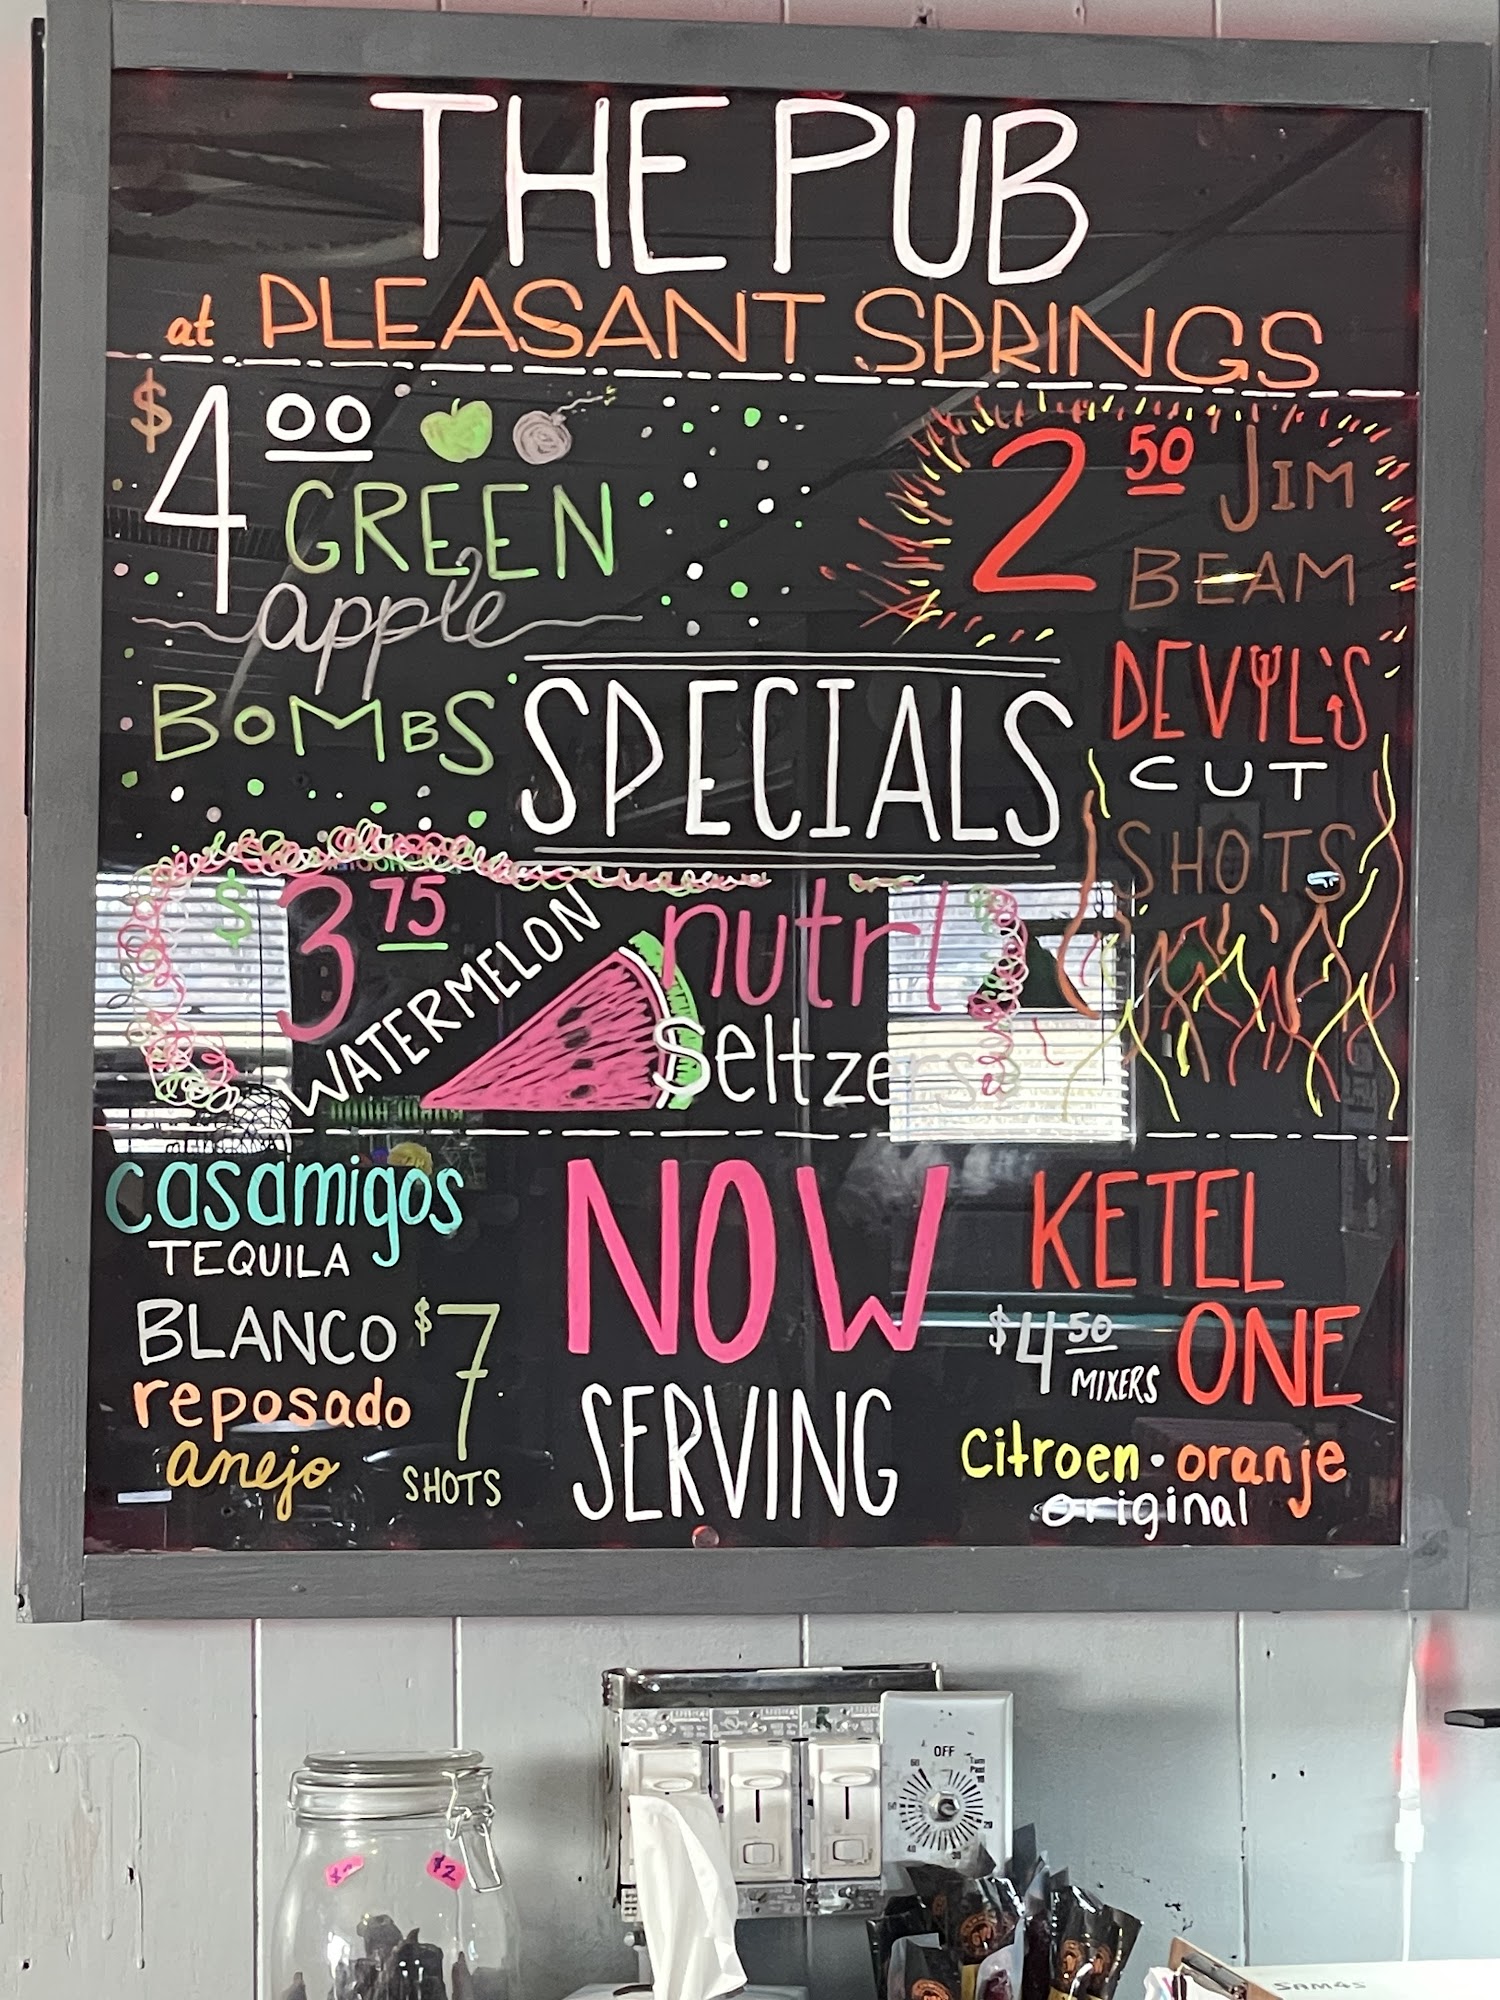 THE PUB
at PLEASANT SPRINGS
$4.00
GREEN
apple
BOMBS
2.50 JIM
BEAM
DEVIL'S
CUT
SHOTS
SPECIALS
$3.75
WATERMELON
nutrl
Seltzers
casamigos
TEQUILA
BLANCO
reposado
anejo
$7
SHOTS
NOW
SERVING
KETEL
ONE
$4.50
MIXERS
citroen · oranje
original
OFF
$2
SAM4S